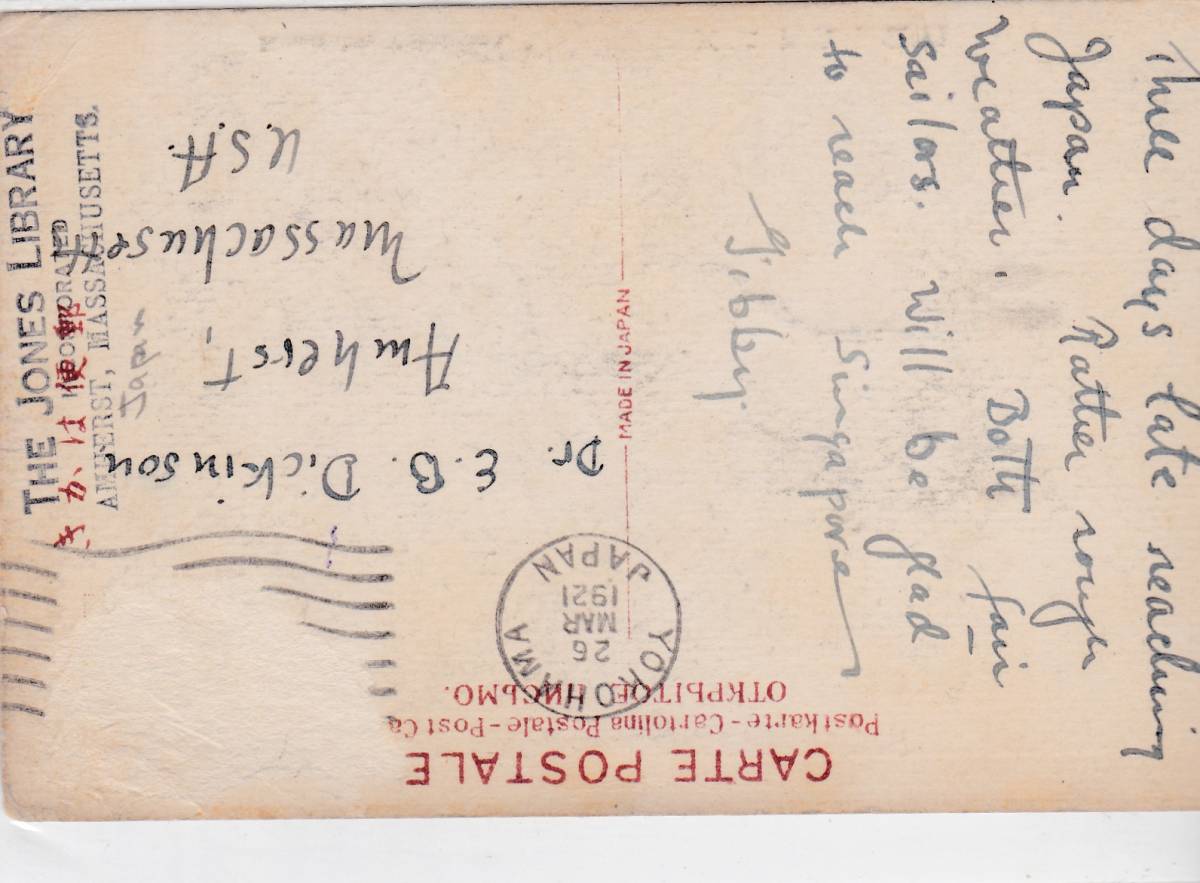 CARTE POSTALE
Postkarte - Cartolina Postale - Post Ca
ОТКРЫТОЕ ПИСЬМО.
YOKOHAMA
26
MAR
1921
JAPAN
MADE IN JAPAN
Three days late reaching
Japan. Rather rough
weather. Both fair
sailors. Will be glad
to reach Singapore
Gibby.
Dr. E. B. Dickinson
Amherst,
Massachusetts
U.S.A.
きかは便郵
THE JONES LIBRARY
INCORPORATED
AMHERST, MASSACHUSETTS.
Japan